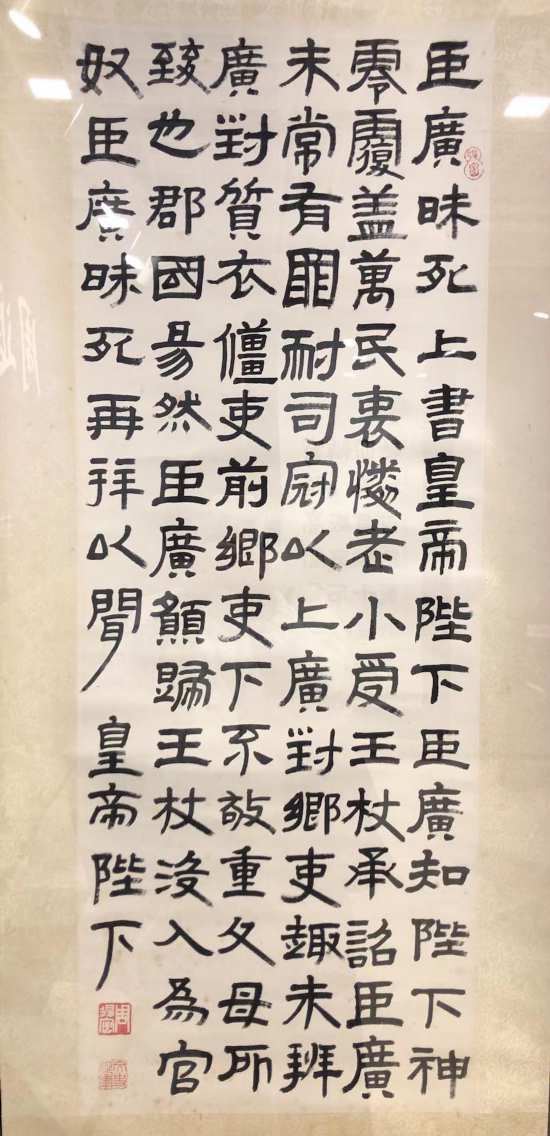 臣廣昧死上書皇帝陛下臣廣知陛下神
零覆盖萬民哀憐老小受王杖承詔臣廣
未常有罪耐司寇以上廣對鄉吏趣未辨
廣對質衣僵吏前鄉吏下不敬重父母所
致也郡國易然臣廣願歸王杖没入為官
奴臣廣昧死再拜以聞 皇帝陛下